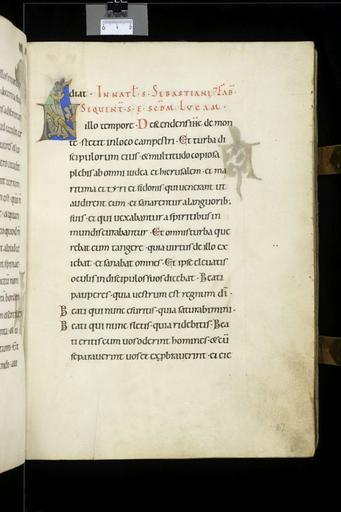 diat · In nat̄ · s · Sebastiani · Fab̄
Sequent̄ · s · e · scdm Lucam ·
In illo tempore · Descendens ihc de mon
te · stetit in loco campestri · Et turba di
scipulorum eius · & multitudo copiosa
plebis ab omni iudea · et hierusalem · et ma
ritima et tyri et sidonis qui uenerant ut
audirent eum · et sanarentur a languorib;
suis · et qui uexabantur a spiritibus in
mundis curabantur · Et omnis turba que
rebat eum tangere · quia uirtus de illo ex
iebat · et sanabat omnes · Et ipse eleuatis
oculis in discipulos suos dicebat · Beati
pauperes · quia uestrum est regnum dī ·
Beati qui nunc esuritis · quia saturabimini ·
Beati qui nunc fletis · quia ridebitis · Bea
ti eritis cum uos oderint homines · & cū
separauerint uos et exprobrauerint · et eie